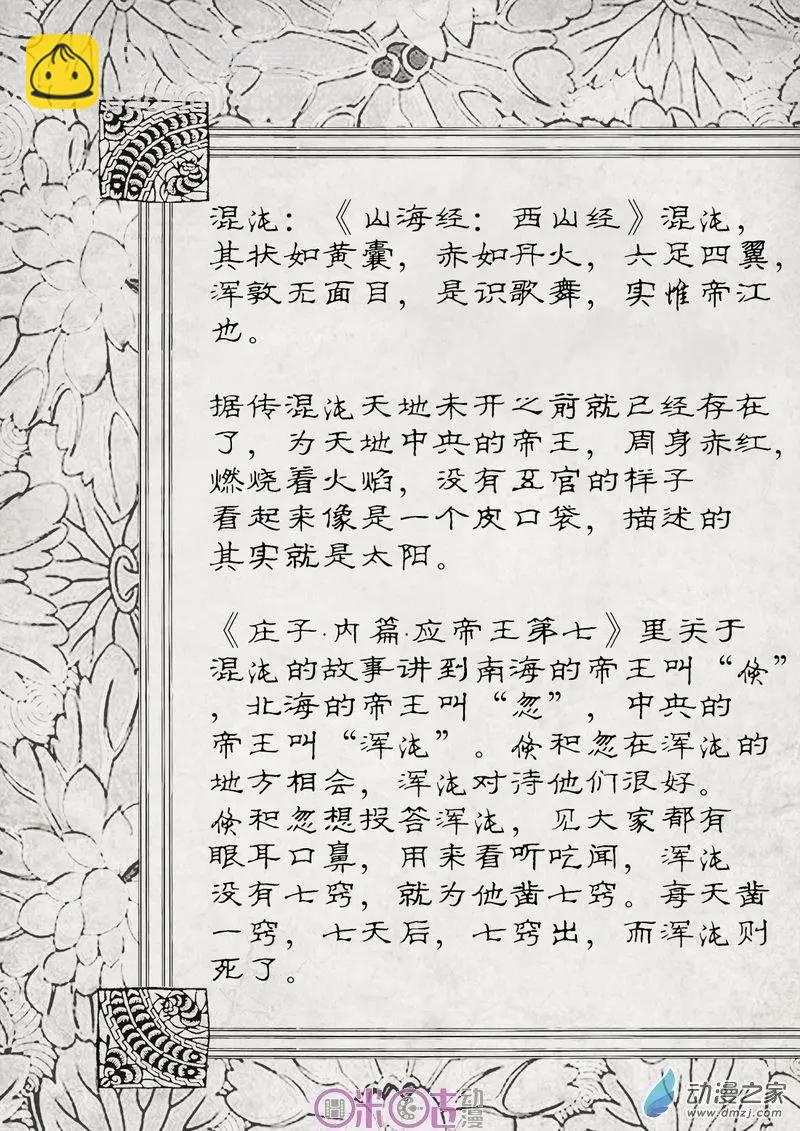 混沌：《山海经：西山经》混沌，
其状如黄囊，赤如丹火，六足四翼，
浑敦无面目，是识歌舞，实惟帝江
也。
据传混沌天地未开之前就已经存在
了，为天地中央的帝王，周身赤红，
燃烧着火焰，没有五官的样子
看起来像是一个皮口袋，描述的
其实就是太阳。
《庄子·内篇·应帝王第七》里关于
混沌的故事讲到南海的帝王叫“倏”
，北海的帝王叫“忽”，中央的
帝王叫“浑沌”。倏和忽在浑沌的
地方相会，浑沌对待他们很好。
倏和忽想报答浑沌，见大家都有
眼耳口鼻，用来看听吃闻，浑沌
没有七窍，就为他凿七窍。每天凿
一窍，七天后，七窍出，而浑沌则
死了。
咪咕动漫
动漫之家
www.dmzj.com